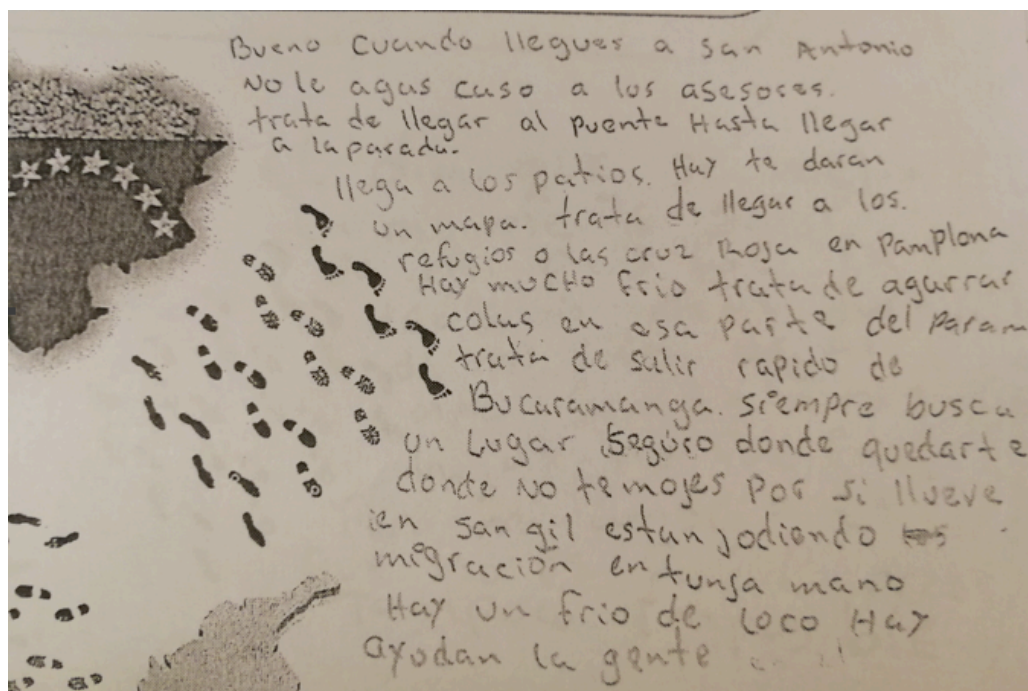 Bueno Cuando llegues a San Antonio
No le agas caso a los asesores.
trata de llegar al puente Hasta llegar
a la parada.
llega a los patios. Hay te daran
un mapa. trata de llegar a los.
refugios o las cruz Roja en Pamplona
Hay mucho Frio trata de agarrar
colas en esa parte del Param
trata de salir rapido de
Bucaramanga. siempre busca
un Lugar Seguro donde quedarte
donde No te mojes por si llueve
en San gil estan jodiendo
migración en tunja mano
Hay un frio de loco Hay
ayudan la gente